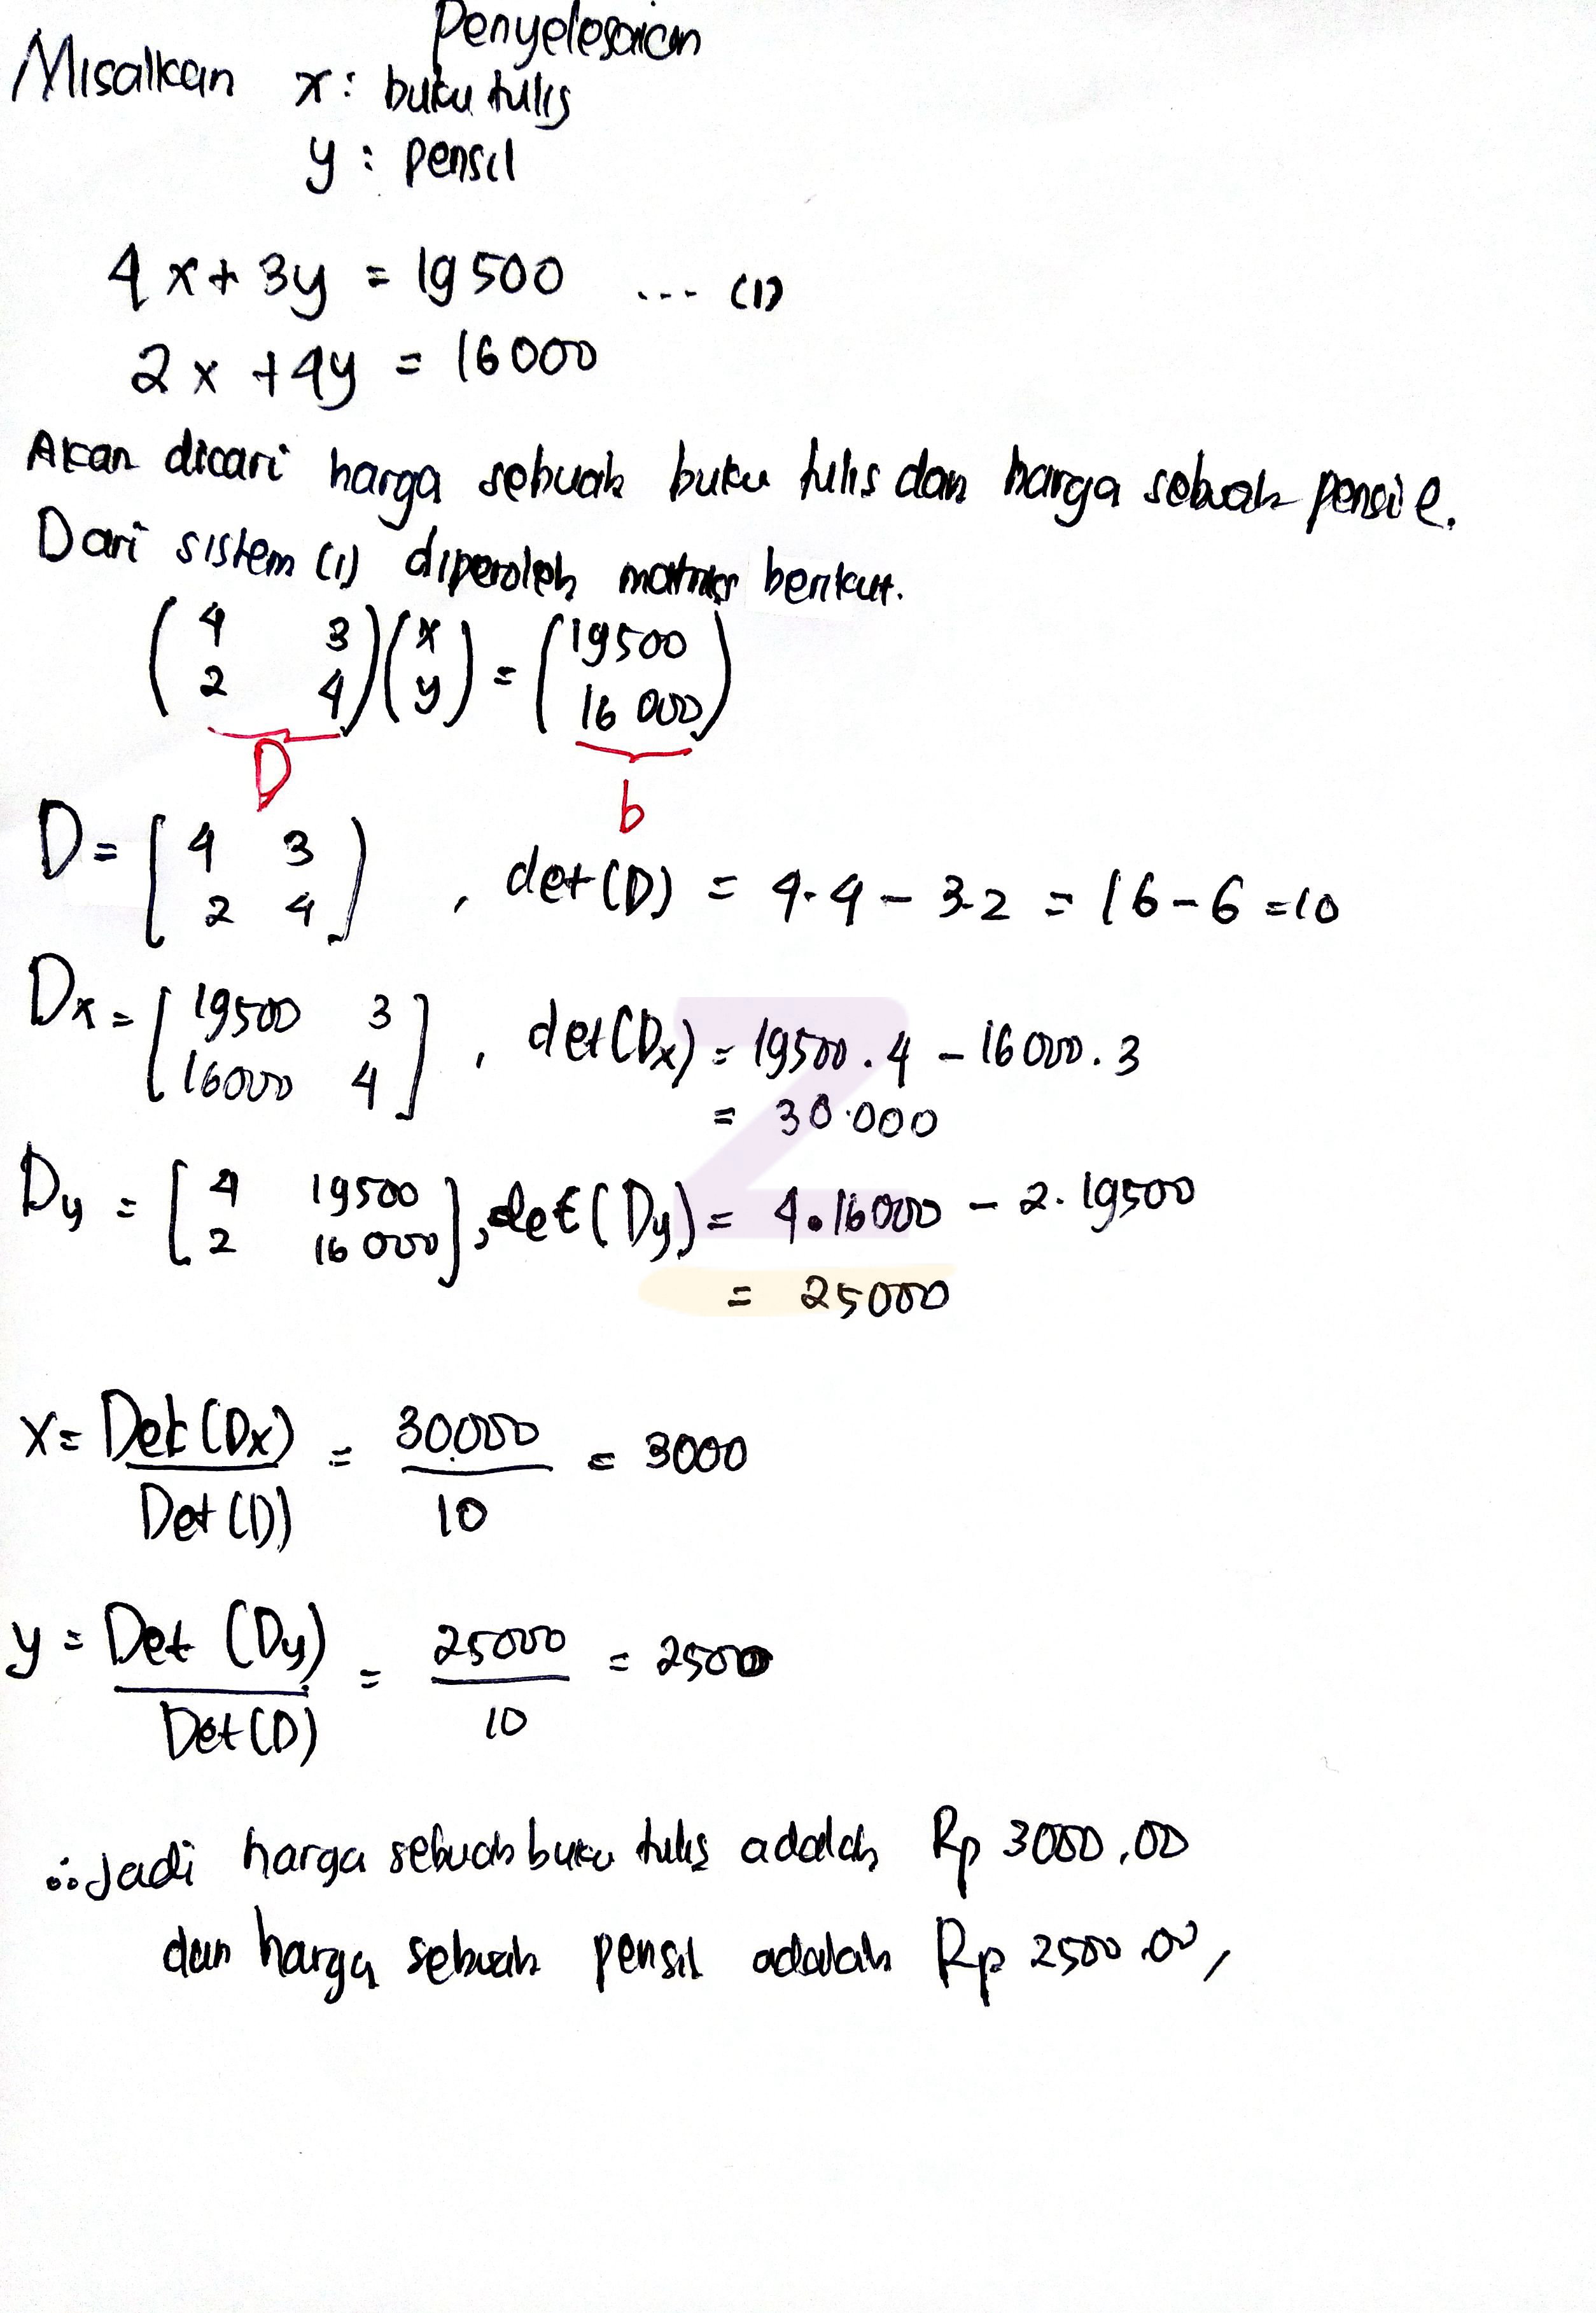 Penyelesaian
Misalkan x : buku tulis
y : pensil
4x + 3y = 19500 ... (1)
2x + 4y = 16000
Akan dicari harga sebuah buku tulis dan harga sebuah pensil.
Dari sistem (1) diperoleh matriks berikut.
(4 3) (x) = (19500)
(2 4) (y) (16 000)
D b
D = [4 3 , det(D) = 4.4 - 3.2 = 16 - 6 = 10
2 4]
Dx = [19500 3 , det(Dx) = 19500 . 4 - 16000 . 3
16000 4]
= 30.000
Dy = [4 19500 , det(Dy) = 4.16000 - 2.19500
2 16000]
= 25000
x = Det(Dx) = 30.000 = 3000
Det(D) 10
y = Det (Dy) = 25000 = 2500
Det(D) 10
∴ Jadi harga sebuah buku tulis adalah Rp 3000,00
dan harga sebuah pensil adalah Rp 2500.00,